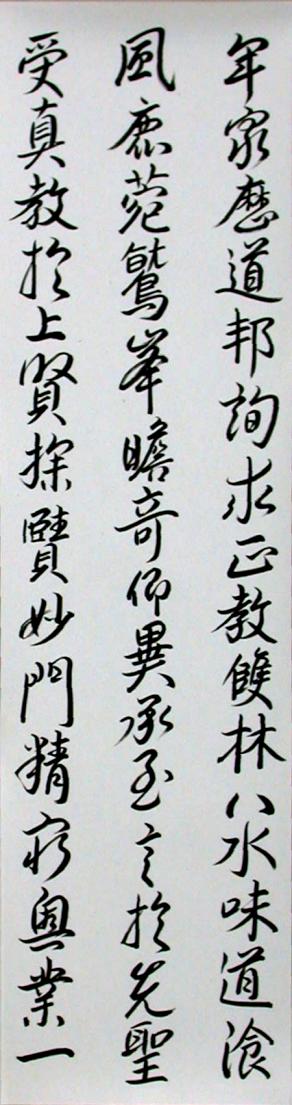 年窮歷道邦詢求正教雙林八水味道湌
風鹿菀鷲峯瞻奇仰異承至言於先聖
受真教於上賢探賾妙門精窮奧業一